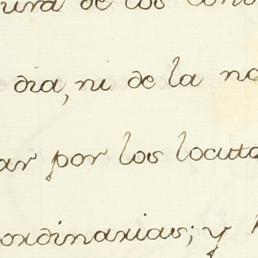 ura de los cono
dia, ni de la no
ar por los locuto
ordinarias; y